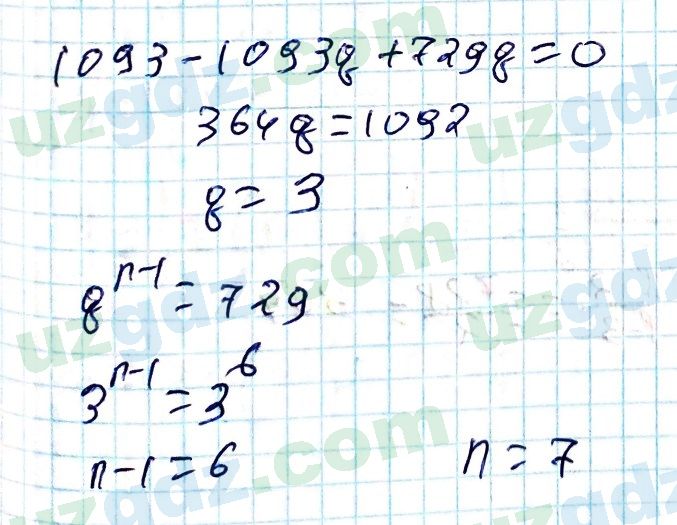 1093-1093q+729q=0
364q=1092
q=3
q^{n-1}=729
3^{n-1}=3^6
n-1=6 n=7
uzgdz.com
uzgdz.com
uzgdz.com
uzgdz.com
uzgdz.com
uzgdz.com